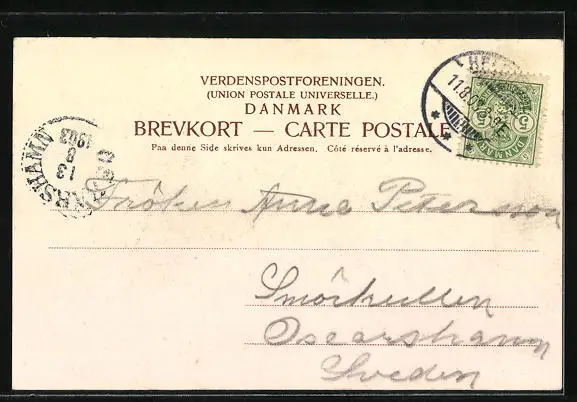 VERDENSPOSTFORENINGEN.
(UNION POSTALE UNIVERSELLE.)
DANMARK
BREVKORT — CARTE POSTALE
Paa denne Side skrives kun Adressen. Côté réservé à l'adresse.
11.8.03
DANMARK
5
OSCARSHAMN
13
8
1903
Fröken Anna Petersson
Smörkullen
Oscarshamn
Sveden